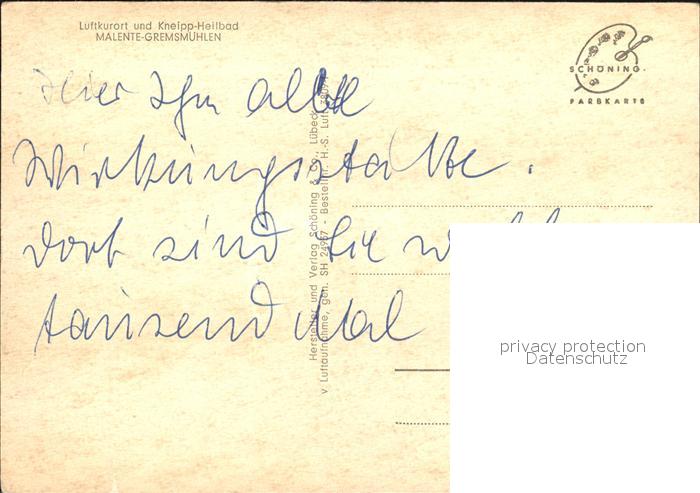 Luftkurort und Kneipp-Heilbad
MALENTE-GREMSMÜHLEN
SCHÖNING
FARBKARTE
Hier Ihre alte
Wirkungsstätte.
Dort sind Sie
tausend Mal
Hersteller und Verlag Schöning & Co., Lübeck
v. Luftaufnahme, gen. SH 24987 - Bestellnr. H.-S. Luft
privacy protection
Datenschutz